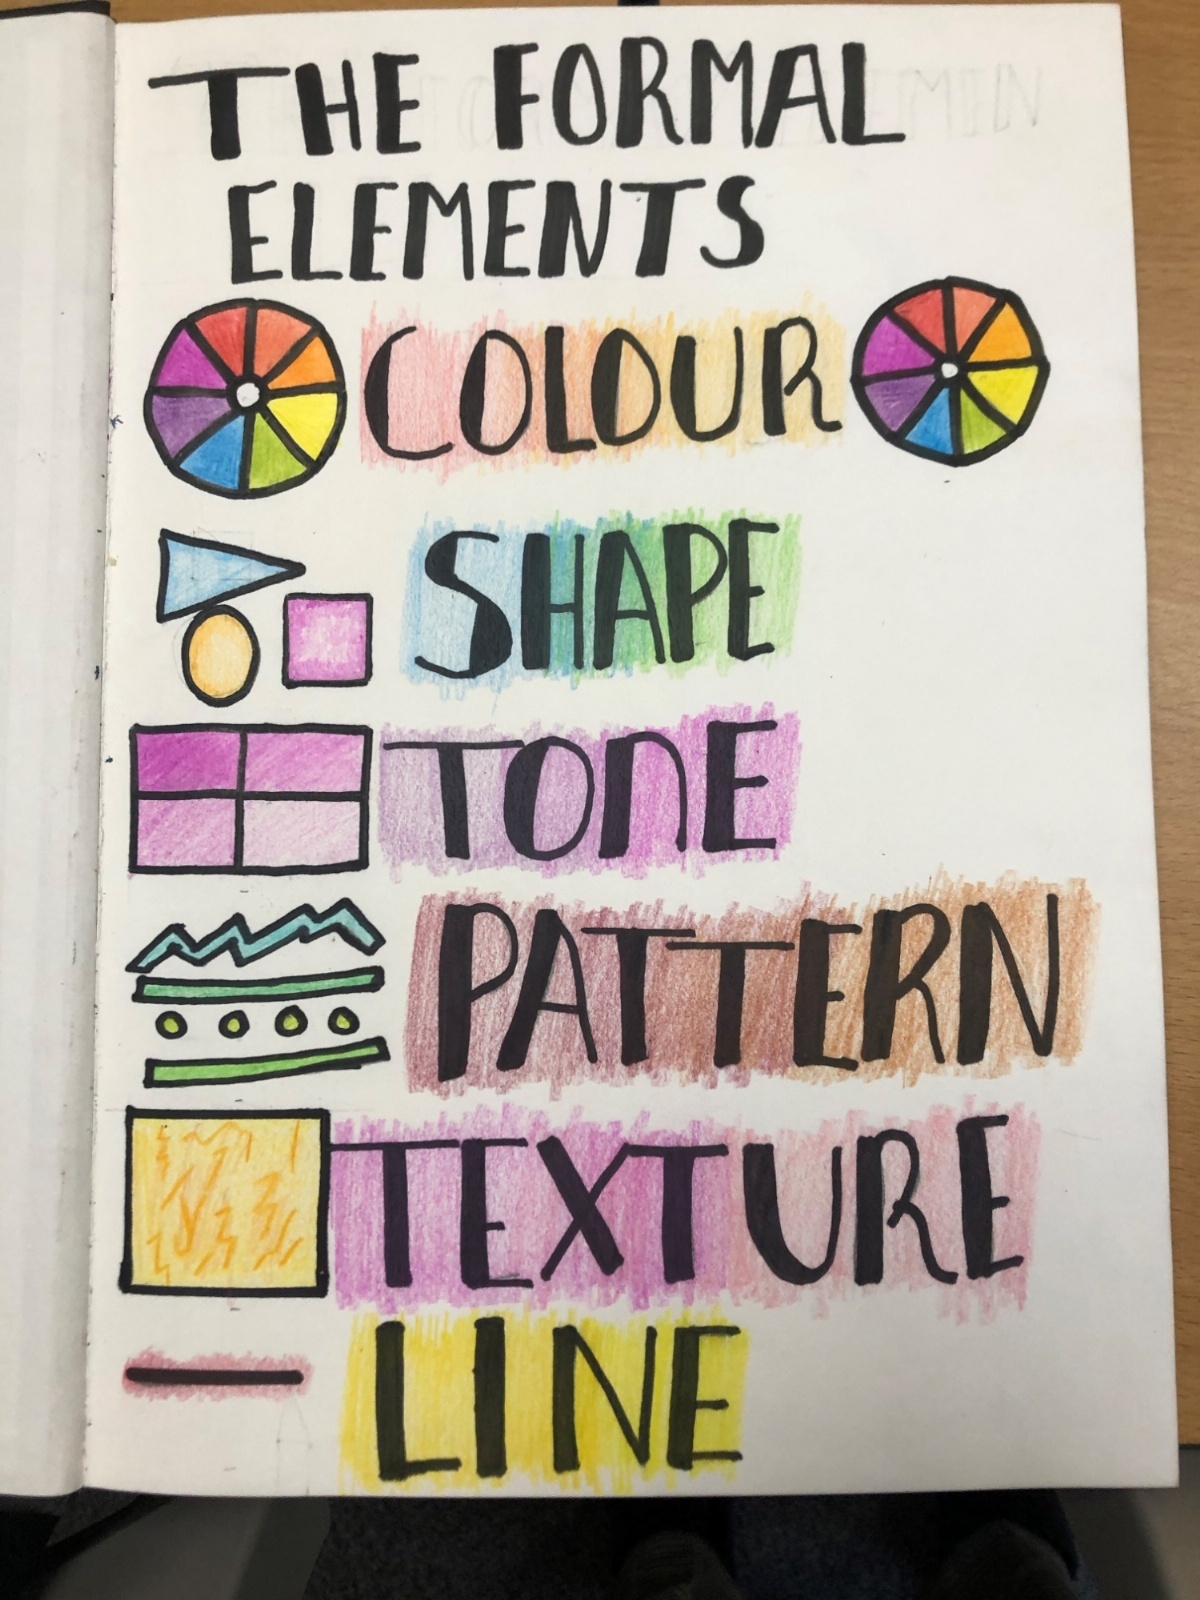 THE FORMAL
ELEMENTS
COLOUR
SHAPE
TONE
PATTERN
TEXTURE
LINE